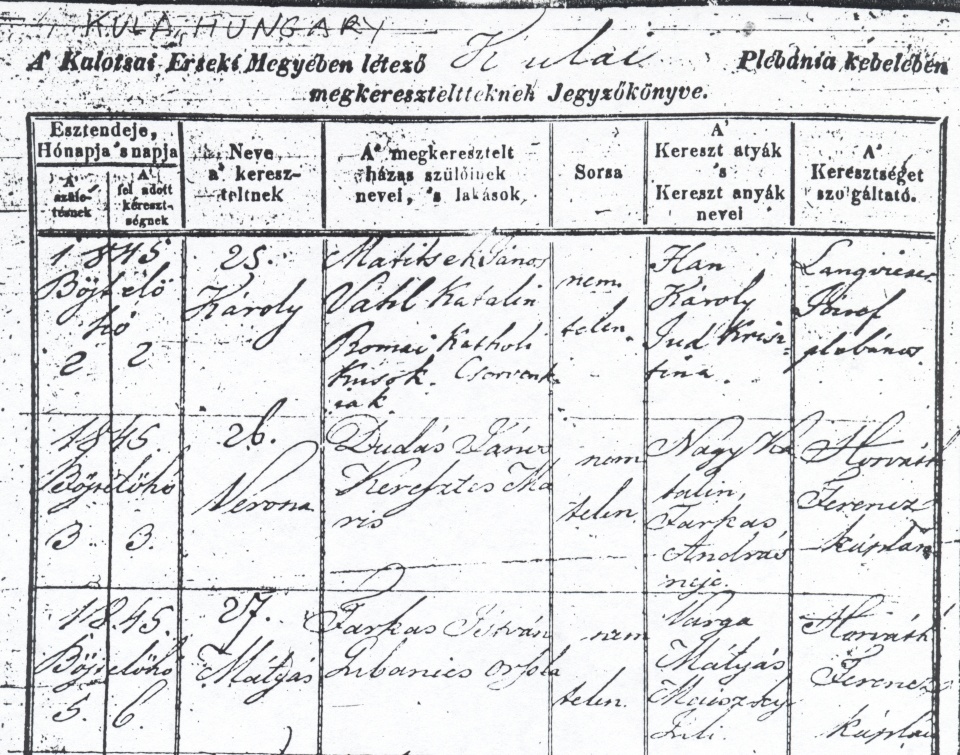 KULA, HUNGARY
A' Kalotsai Erseki Megyében létező Kulai Plébánia kebelében
megkereszteltteknek Jegyzőkönyve.
Esztendeje,
Hónapja 's napja
A' szülötésnek
A' fel adott kéreszt-ségnek
Neve
a' keresz-
teltnek
A' megkeresztelt
házas szülőinek
nevei, 's lakások.
Sorsa
A'
Kereszt atyák
's
Kereszt anyák
nevei
A'
Keresztséget
szolgáltató.
1845
Böjtelő
hó
2 2
25.
Károly
Matitsek János
Vahl Katalin
Romai Katholi
kusok. Cservenk
iak.
nem
telen.
Han
Károly
Jud Krisz-
tina.
József
plebános.
1845.
Böjtelőhó
3. 3.
26.
Verona
Dudás János
Keresztes Ma
ris
nem
telen.
Nagy Ka
talin,
Farkas
András
neje.
Horváth
Ferencz
káplán
1845.
Böjtelőhó
5. 6.
27.
Mátyás
Farkas István
Urbanics Orsola
nem
telen.
Varga
Mátyás
Juli.
Horváth
Ferencz
káplán